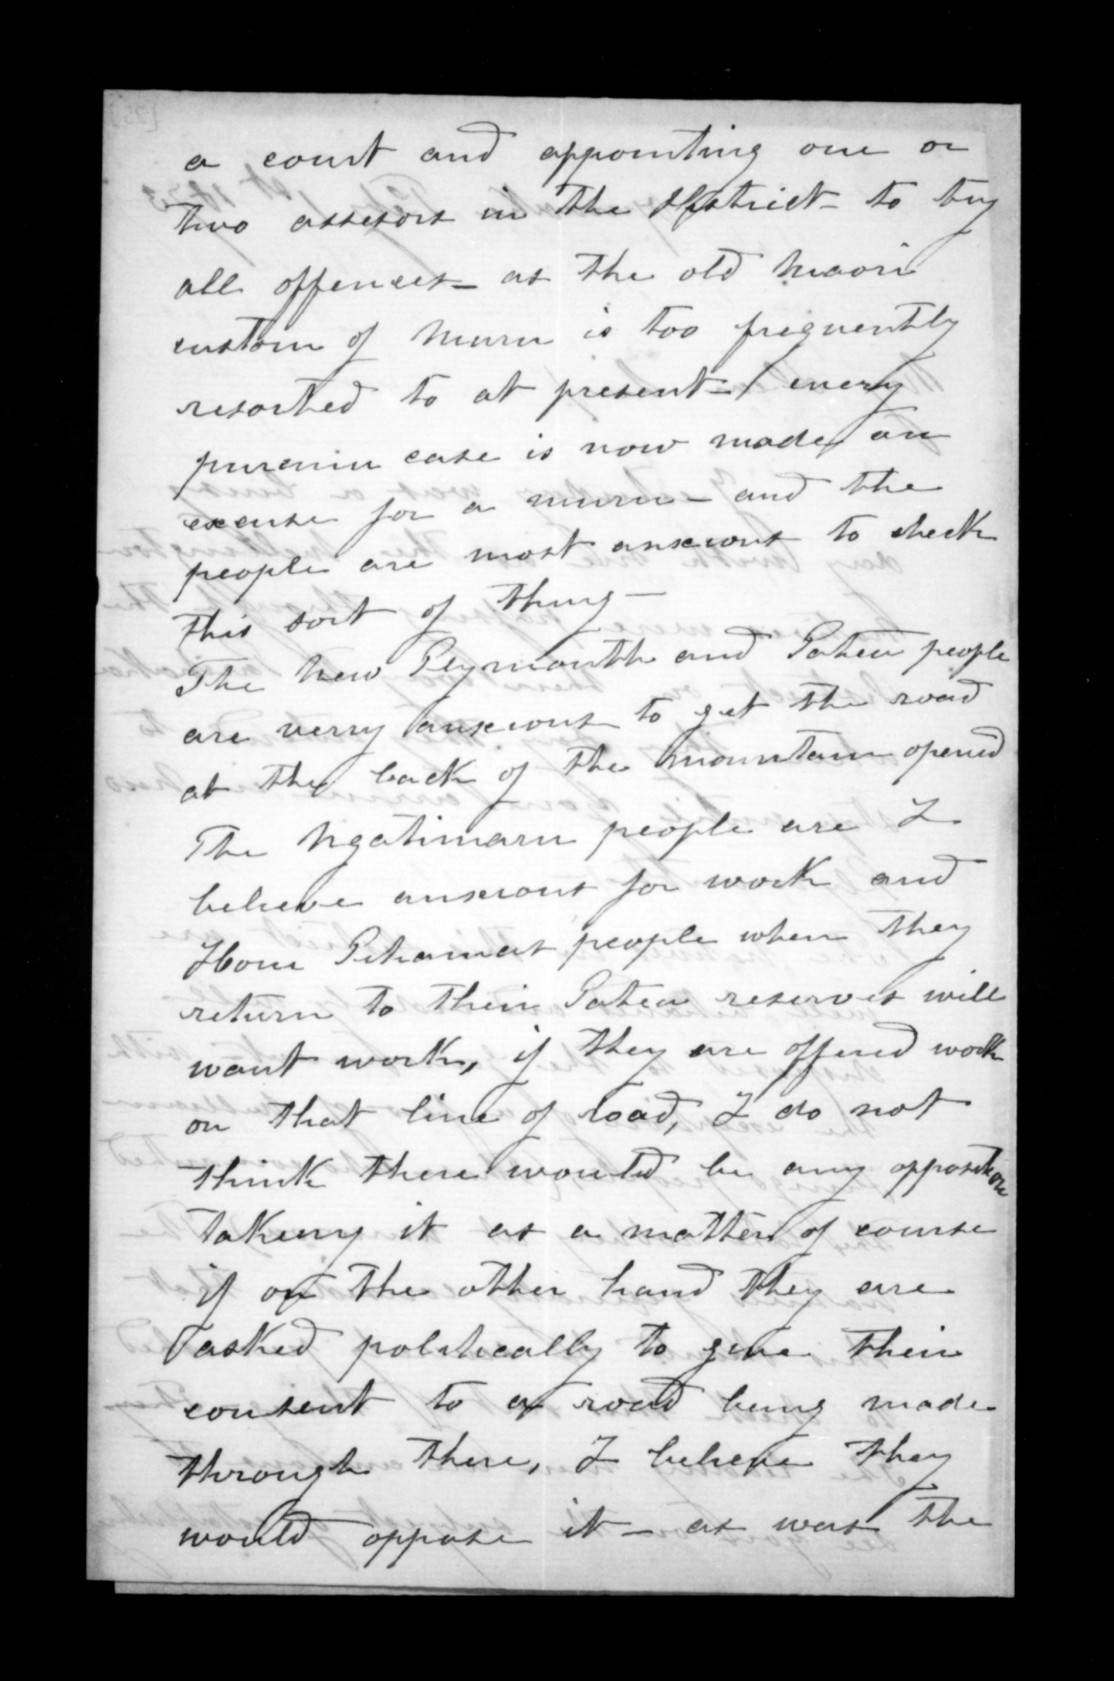 a court and appointing one or
two assesors in the district - to try
all offenses - as the old Maori
custom of Muru is too frequently
resorted to at present - every
puremu case is now made an
excuse for a muru - and the
people are most anxious to check
this sort of thing -
The New Plymouth and Patea people
are verry anxious to get the road
at the back of the mountain opened
The Ngatimaru people are I
believe anxious for work and
Hone Pihamas people when they
return to their Patea reserves will
want work, if they are offered work
on that line of road, I do not
think there would be any opposition
taking it as a matter of course
if on the other hand they are
asked politically to give their
consent to a road being made
through there, I believe they
would oppose it - as was the